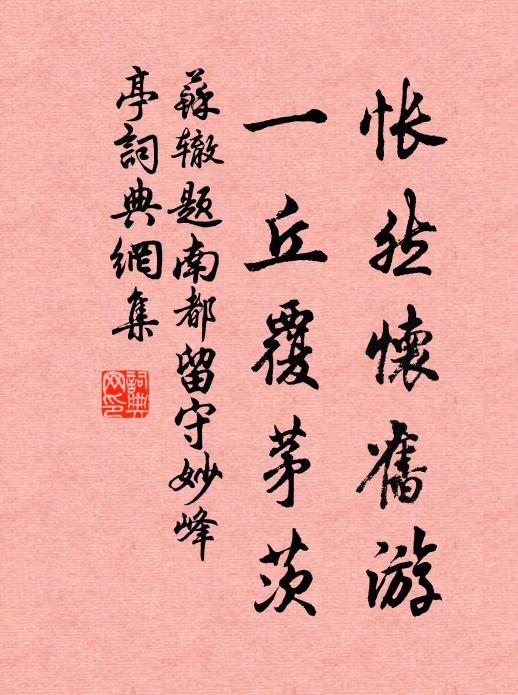 怅然懷舊游
一丘覆茅茨
蘇辙题南都留守妙峰
亭詞典網集
詞典网印